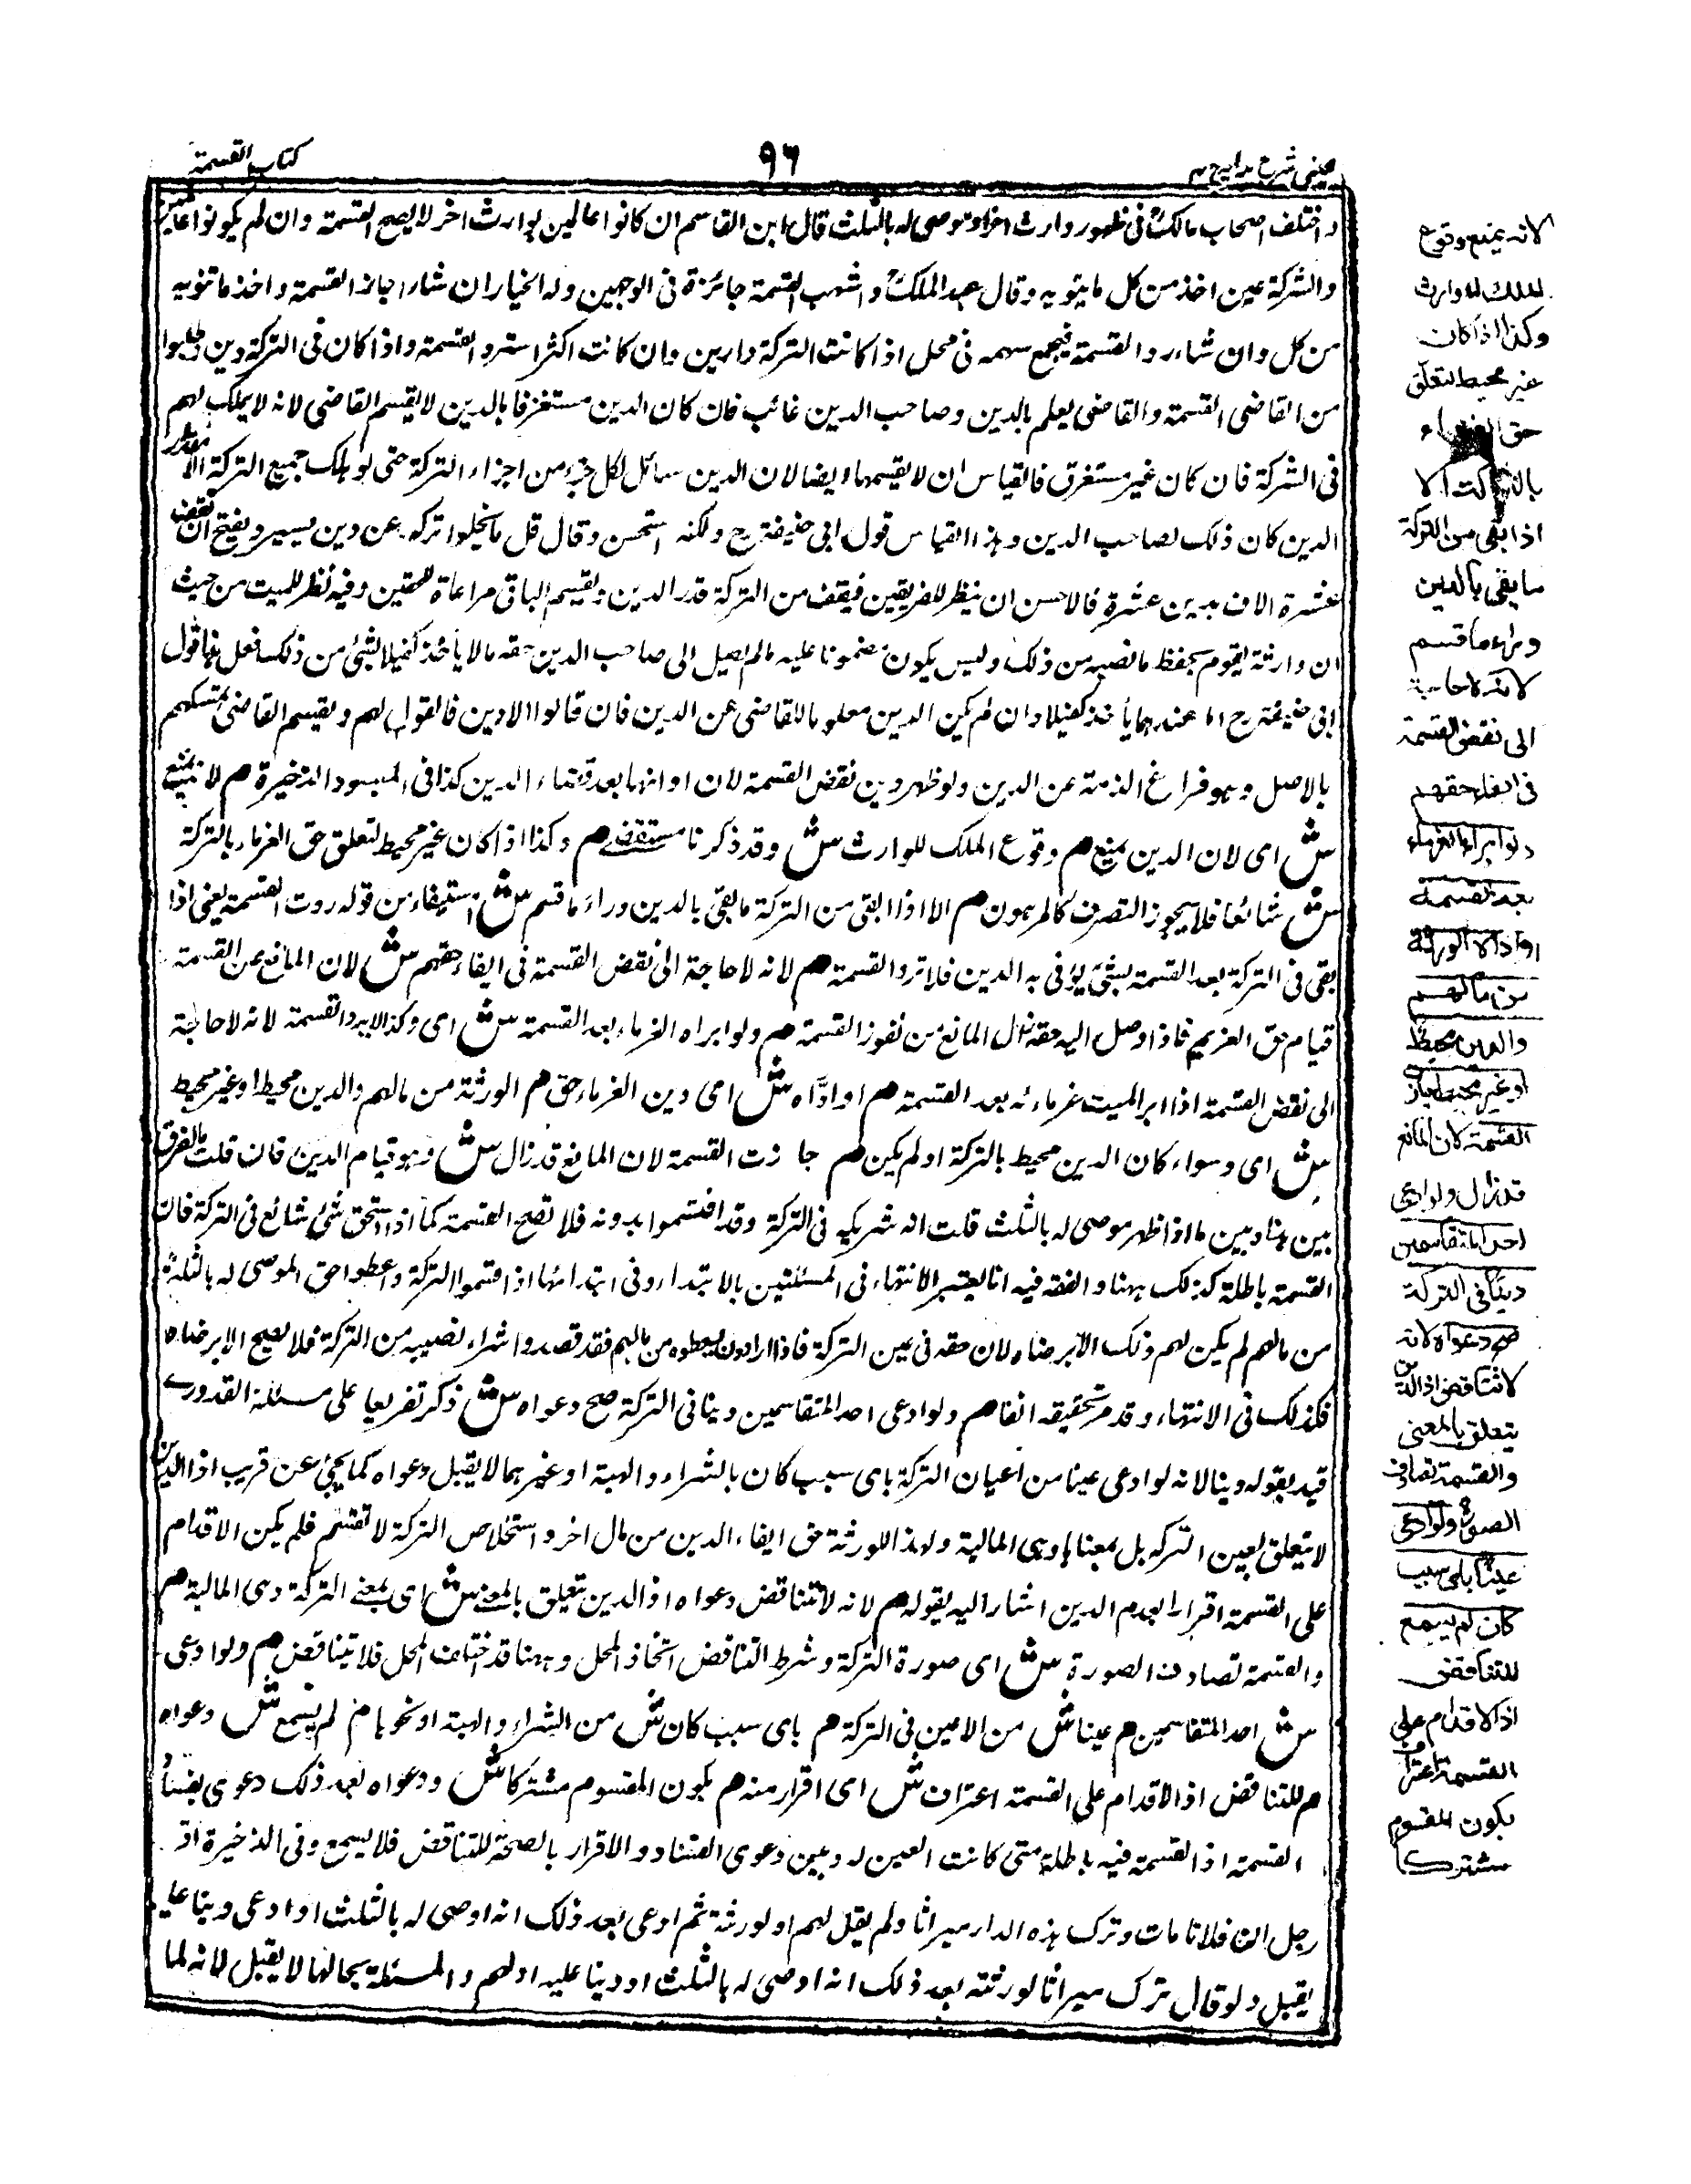 عينى شرح هدايه ج ٣
٩٦
كتاب القسمة
واختلف اصحاب مالك فى ظهور وارث اخر او موصى له بالثلث قال ابن القاسم ان كانوا عالمين بوارث اخر لا يصح القسمة وان لم يكونوا عالمين
والشركة عين اخذ من كل ما ينويه وقال عبد الملك واشهب القسمة جائزة فى الوجهين وله الخيار ان شاء اجاز القسمة واخذ ما ينويه
من كل وان شاء رد القسمة فيجمع سهمه فى محل اذا كانت التركة دارين وان كانت اكثر استرد القسمة واذا كان فى التركة دين طلبوا
من القاضى القسمة والقاضى يعلم بالدين وصاحب الدين غائب فان كان الدين مستغرقا بالدين لا يقسم القاضى لانه لا يملك لهم
فى الشركة فان كان غير مستغرق فالقياس ان لا يقسمها ايضا لان الدين سائل لكل جزء من اجزاء التركة حتى لو هلك جميع التركة الا مقدار
الدين كان ذلك لصاحب الدين وهذا القياس قول ابى حنيفة رح ولكنه استحسن وقال قل ما تخلوا تركة عن دين يسير ويقبح ان نقض
عشرة الاف بدين عشرة فالاحسن ان ينظر للفريقين فيقف من التركة قدر الدين ويقسم الباقى مراعاة للحقين وفيه نظر للميت من حيث
ان وارثه يقوم بحفظ ما نصيبه من ذلك وليس يكون مضمونا عليه مالم يصل الى صاحب الدين حقه مالا يأخذ كفيلا لشئ من ذلك فعل هذا قول
ابى حنيفة رح اما عندهما يأخذ كفيلا وان لم يكن الدين معلوما للقاضى عن الدين فان قالوا لا دين فالقول لهم ويقسم القاضى لتمسكهم
بالاصل وهو فراغ الذمة عن الدين ولو ظهر دين نقض القسمة لان اوانها بعد قضاء الدين كذا فى المبسوط والذخيرة م لانه يمنع
ش اى لان الدين يمنع م وقوع الملك للوارث ش وقد ذكرنا مستقضے م وكذا اذا كان غير محيط لتعلق حق الغرماء بالتركة
ش شائعا فلا يجوز التصرف كالمرهون م الا اذا بقى من التركة ما بقى بالدين وراء ما قسم ش استيفاء من قوله ردت القسمة يعنى اذا
بقى فى التركة بعد القسمة لشئ يوفى به الدين فلا ترد القسمة م لانه لا حاجة الى نقض القسمة فى ايفاء حقهم ش لان المانع عن القسمة
قيام حق الغريم فاذا وصل اليه حقه زال المانع من نفوذ القسمة م ولو ابراه الغرماء بعد القسمة ش اى وكذا لا يرد القسمة لانه لا حاجة
الى نقض القسمة اذا ابر الميت غرمائه بعد القسمة م او اداه ش اى دين الغرماء حق م الورثة من مالهم والدين محيط او غير محيط
ش اى وسواء كان الدين محيط بالتركة او لم يكن م جازت القسمة لان المانع قد زال ش وهو قيام الدين فان قلت ما الفرق
بين هنا وبين ما اذا ظهر موصى له بالثلث قلت انه شريك فى التركة وقد اقتسموا بدونه فلا تصح القسمة كما اذا استحق شئ شائع فى التركة فان
القسمة باطلة كذلك ههنا والفقه فيه انا يعتبر الانتهاء فى المسئلتين بالابتداء وفى ابتدائها اذا قسموا التركة واعطوا حق الموصى له بالثلث
من مالهم لم يكن لهم ذلك الا برضاه لان حقه فى عين التركة فاذا ارادوا ان يعطوه من مالهم فقد قصدوا شراء نصيبه من التركة فلا يصح الا برضاه
فكذلك فى الانتهاء وقد مر تحقيقه انفا م ولو ادعى احد المتقاسمين دينا فى التركة صح دعواه ش ذكر تفريعا على مسئلة القدورے
قيد بقوله دينا لانه لو ادعى عينا من اعيان التركة باى سبب كان بالشراء والهبة او غيرهما لا يقبل دعواه كما يجئ عن قريب اذ الدين
لا يتعلق بعين التركه بل بمعناها وهى المالية ولهذا للورثة حق ايفاء الدين من مال اخر واستخلاص التركة لا تقسم فلم يكن الاقدام
على القسمة اقرارا بعدم الدين اشار اليه بقوله م لانه لا تناقض دعواه اذ الدين يتعلق بالمعنے ش اى بمعنے التركة وهى المالية م
والقسمة تصادف الصورة ش اى صورة التركة وشرط التناقض اتحاذ المحل وههنا قد اختلف المحل فلا يتناقض م ولو ادعى
ش احد المتقاسمين م عينا ش من الاعين فى التركة م باى سبب كان ش من الشراء والهبة او نحوها م لم يسمع ش دعواه
م للتناقض اذ الاقدام على القسمة اعتراف ش اى اقرار منه م بكون المقسوم مشتركا ش ودعواه بعد ذلك دعوى بفساد
القسمة اذ القسمة فيه باطلة متى كانت العين له وبين دعوى الفساد والاقرار بالصحة للتناقض فلا يسمع وفى الذخيرة اذ
رجل ان فلانا مات وترك هذه الدار ميراثا ولم يقل لهم او لورثة ثم ادعى بعد ذلك انه اوصى له بالثلث او ادعى دينا عليه
يقبل ولو قال ترك ميراثا لورثته بعد ذلك انه اوصى له بالثلث او دينا عليه او لهم والمسئلة بحالها لا يقبل لانه لما
لانه يمنع وقوع
الملك للوارث
وكذا اذا كان
غير محيط لتعلق
حق الغرماء
بالتركة الا
اذا بقى من التركة
ما بقى بالدين
وراء ما قسم
لانه لا حاجة
الى نقض القسمة
فى ايفاء حقهم
ولو ابراه الغرماء
بعد القسمة
او اداه الورثة
من مالهم
والدين محيط
او غير محيط جاز
القسمة لان المانع
قد زال ولو ادعى
احد المتقاسمين
دينا فى التركة
صح دعواه لانه
لا تناقض اذ الدين
يتعلق بالمعنى
والقسمة تصادف
الصورة ولو ادعى
عينا باى سبب
كان لم يسمع
للتناقض
اذ الاقدام على
القسمة اعتراف
بكون المقسوم
مشتركا